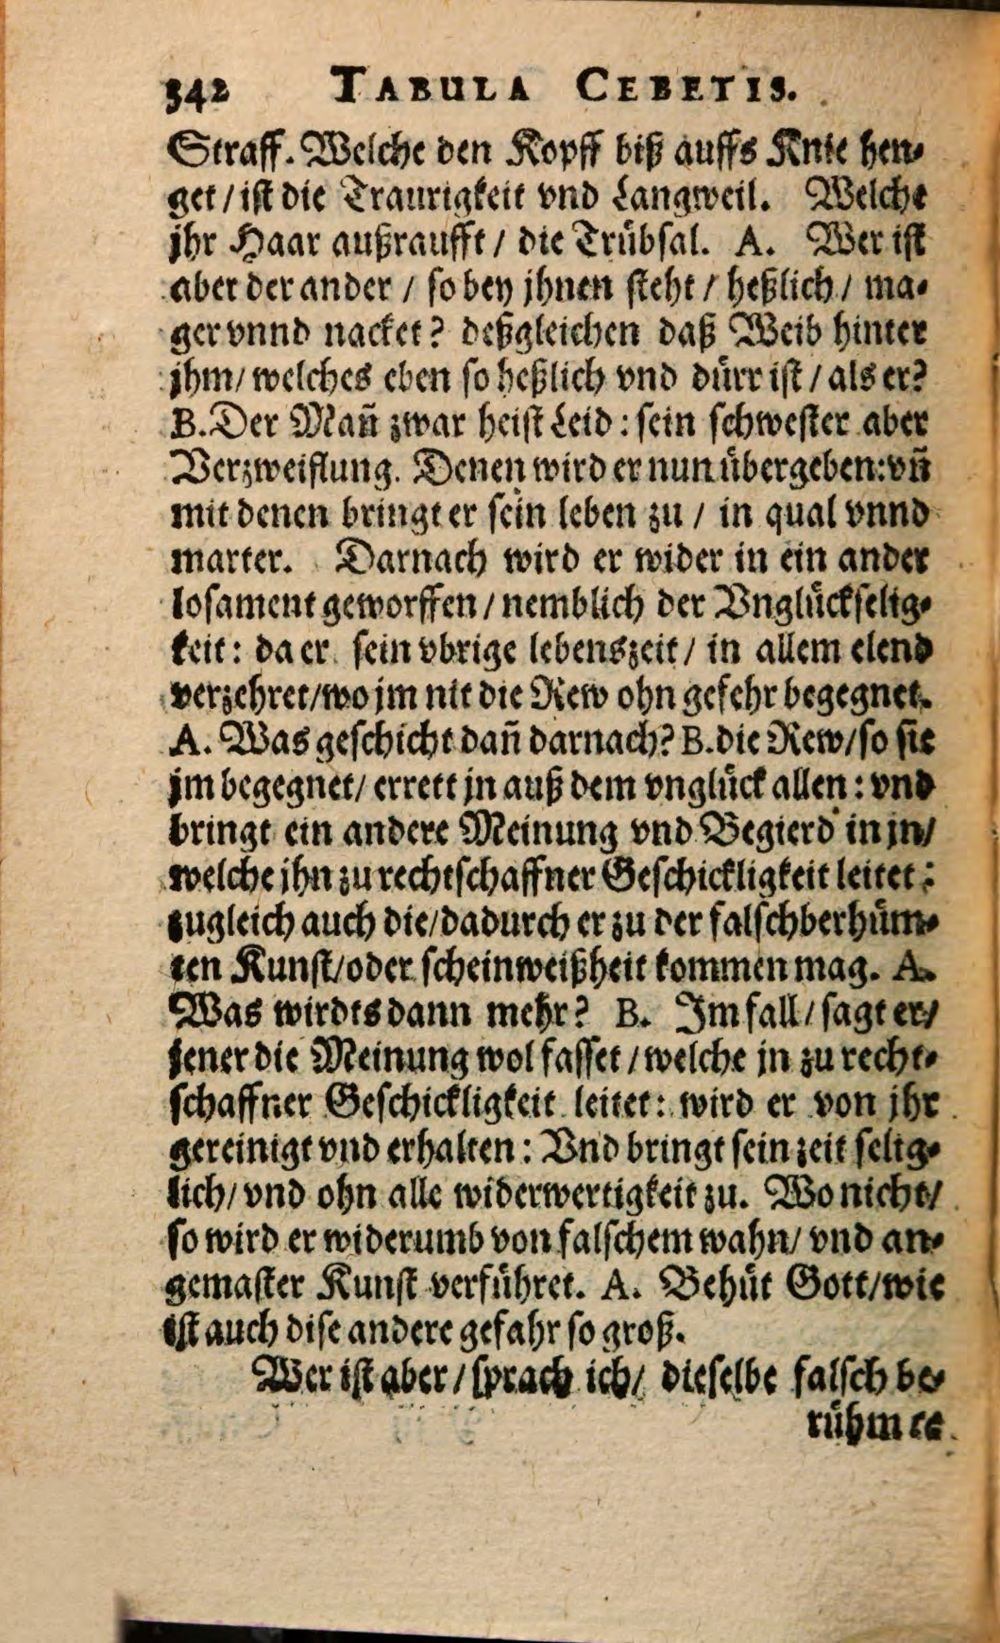 342 TABULA CEBETIS.
Straff. Welche den Kopff biß auffs Knie hen-
get / ist die Traurigkeit vnd Langweil. Welche
jhr Haar außraufft / die Trübsal. A. Wer ist
aber der ander / so bey jhnen steht / heßlich / ma-
ger vnnd nacket? deßgleichen daß Weib hinter
jhm / welches eben so heßlich vnd dürr ist / als er?
B. Der Mañ zwar heist Leid : sein schwester aber
Verzweiflung. Denen wird er nun übergeben: vñ
mit denen bringt er sein leben zu / in qual vnnd
marter. Darnach wird er wider in ein ander
losament geworffen / nemblich der Vnglückselig-
keit: da er sein vbrige lebenszeit / in allem elend
verzehret/wo jm nit die Rew ohn gefehr begegnet.
A. Was geschicht dañ darnach? B. die Rew/so sie
jm begegnet / errett jn auß dem vnglück allen : vnd
bringt ein andere Meinung vnd Begierd in jn/
welche jhn zu rechtschaffner Geschickligkeit leitet:
zugleich auch die/dadurch er zu der falschberhüm-
ten Kunst/oder scheinweißheit kommen mag. A.
Was wirdts dann mehr? B. Im fall / sagt er/
jener die Meinung wol fasset / welche jn zu recht-
schaffner Geschickligkeit leitet: wird er von jhr
gereinigt vnd erhalten : Vnd bringt sein zeit selig-
lich/ vnd ohn alle widerwertigkeit zu. Wo nicht/
so wird er widerumb von falschem wahn/ vnd an-
gemaster Kunst verführet. A. Behüt Gott/wie
ist auch dise andere gefahr so groß.
Wer ist aber / sprach ich/ dieselbe falsch be-
rühmte